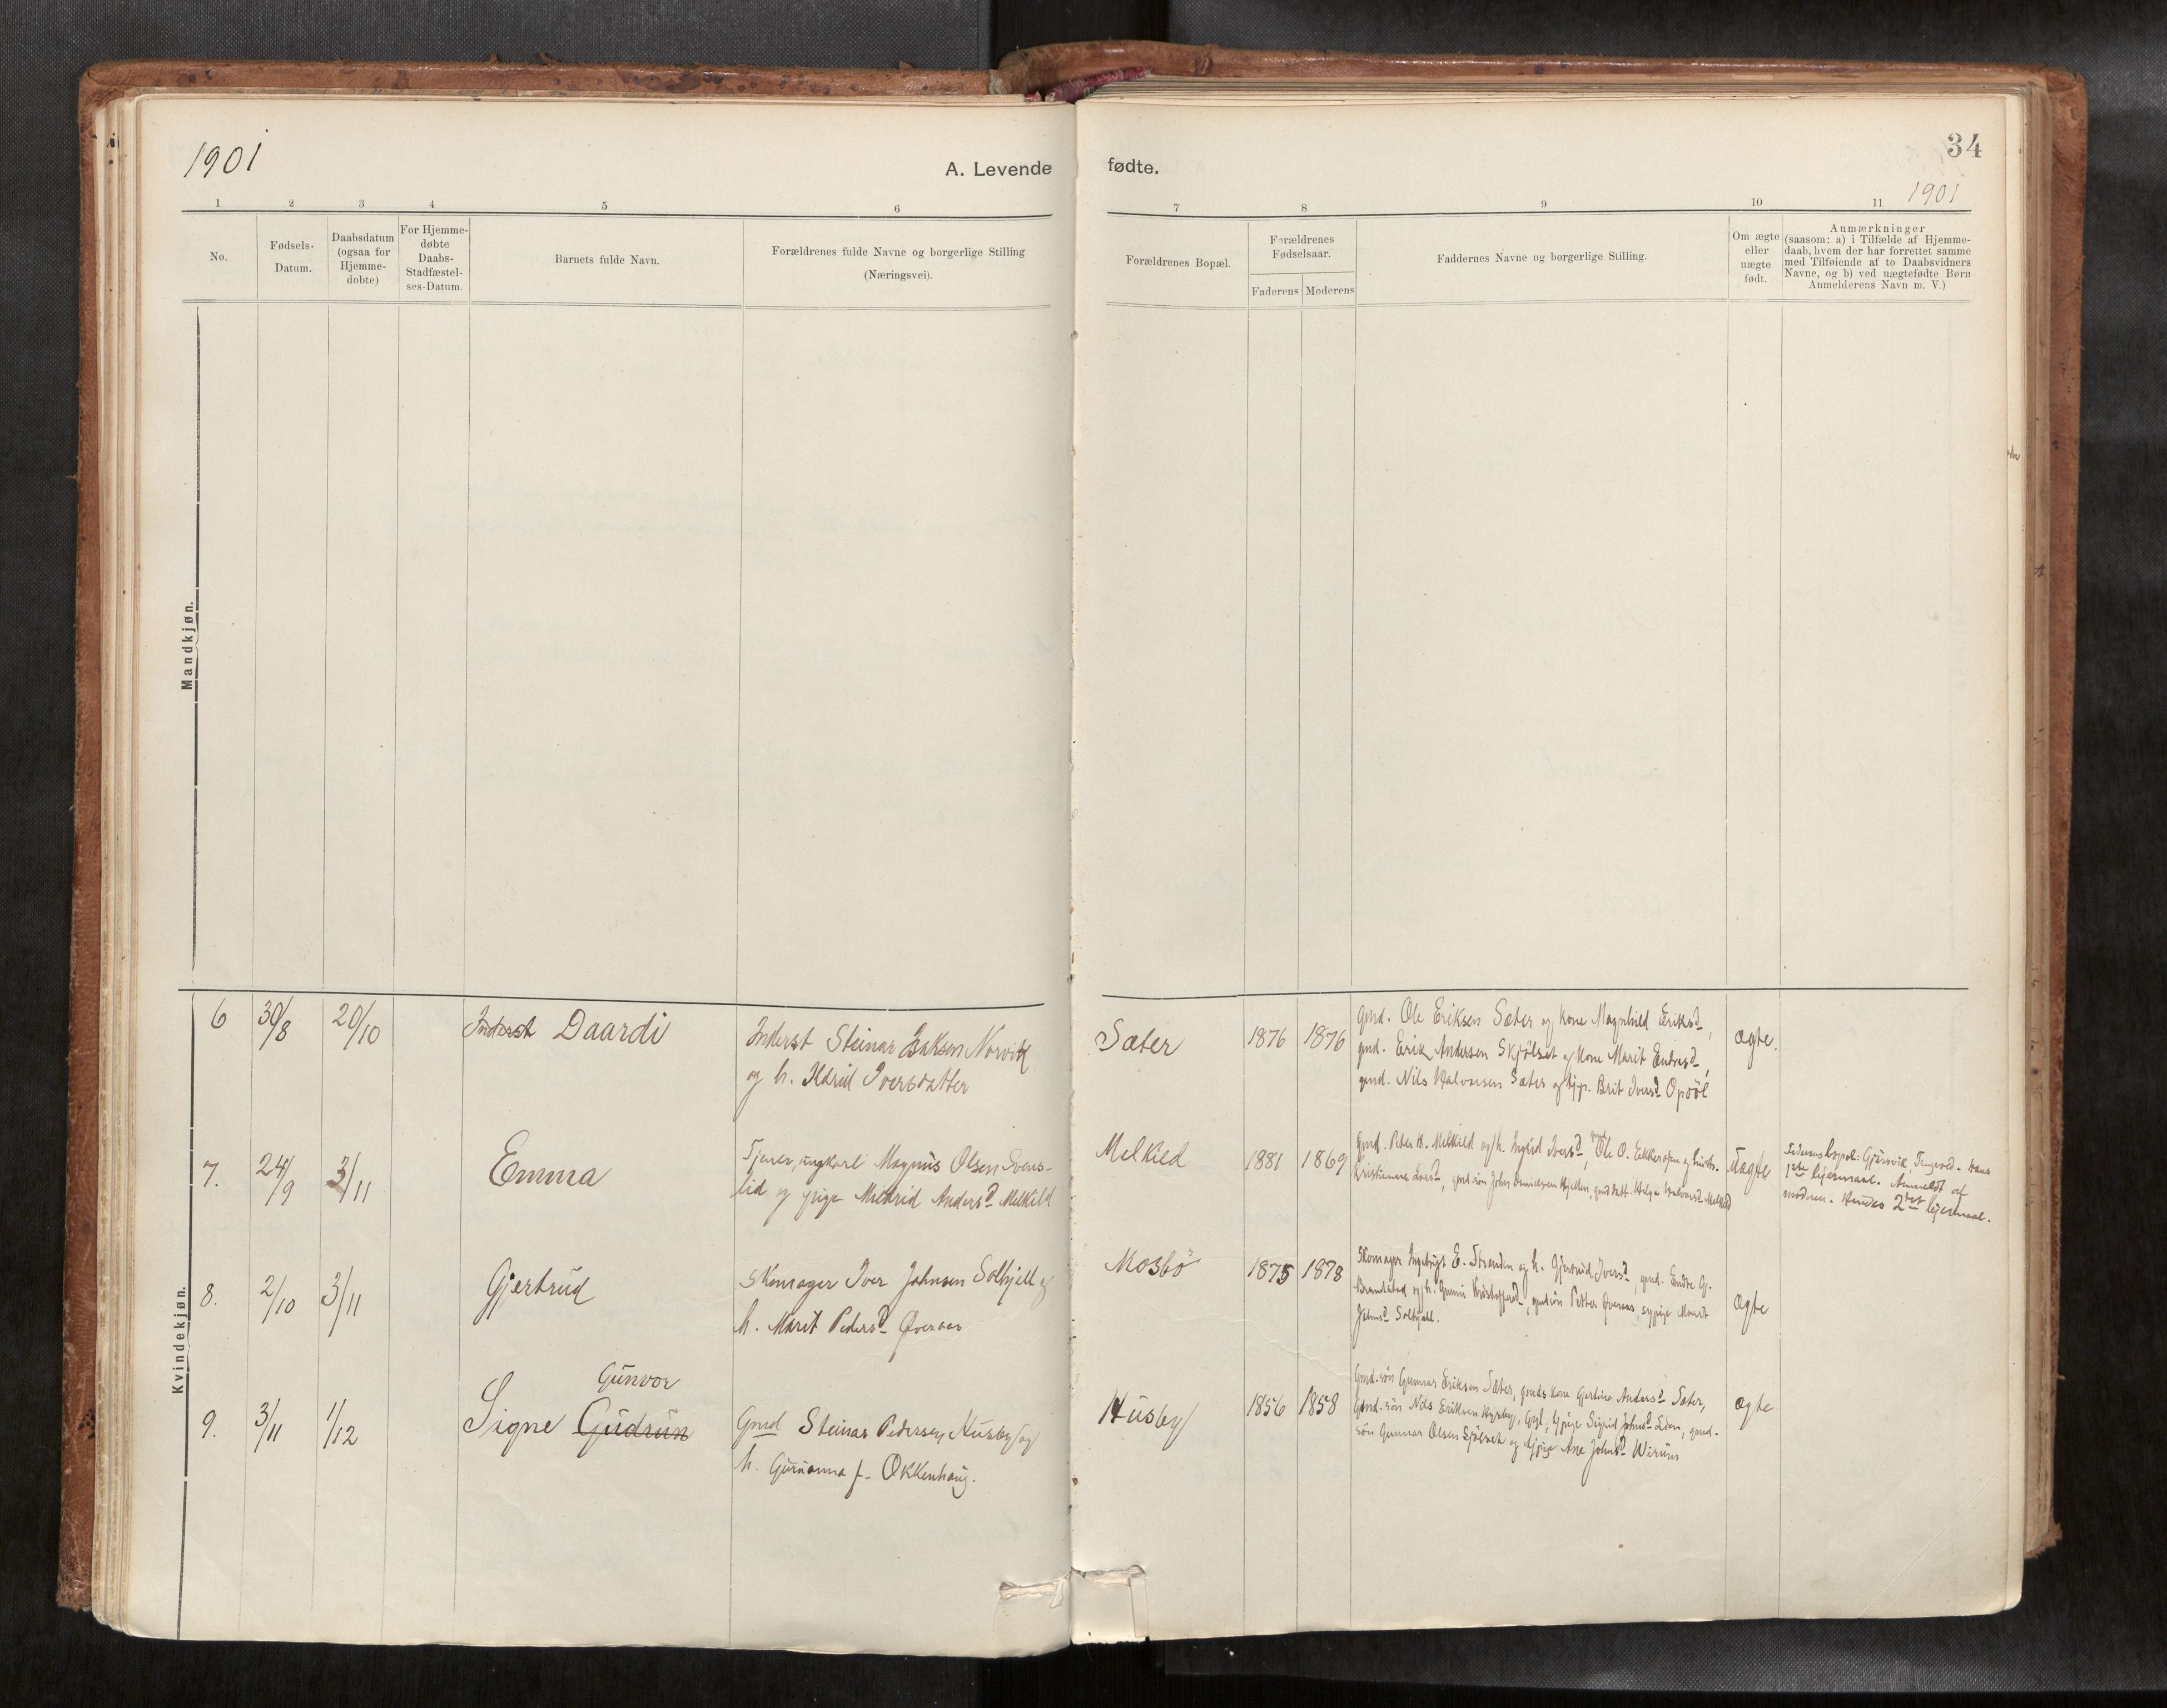 1901
A. Levende
fødte.
34
1901
1 2 3 4 5 6 7 8 9 10 11
No.
Fødsels-
Datum.
Daabsdatum
(ogsaa for
Hjemme-
døbte)
For Hjemme-
døbte
Daabs-
Stadfæstel-
ses-Datum.
Barnets fulde Navn.
Forældrenes fulde Navne og borgerlige Stilling
(Næringsvei).
Forældrenes Bopæl.
Forældrenes
Fødselsaar.
Faderens Moderens
Faddernes Navne og borgerlige Stilling.
Om ægte
eller
uægte
født.
Anmærkninger
(saasom: a) i Tilfælde af Hjemme-
daab, hvem der har forrettet samme
med Tilføiende af to Daabsvidners
Navne, og b) ved uægtefødte Børn
Anmelderens Navn m. V.)
Mandkjøn.
Kvindekjøn.
6 30/8 20/10 Inderst Daardi
Inderst Steinar Isaksen Norvik
og h. Ildrid Iversdatter
Sæter 1876 1876
Gmd. Ole Eriksen Sæter og kone Magnhild Eriksd,
gmd. Erik Andersen Skjölset og kone Marit Endresd,
gmd. Nils Halvorsen Sæter og tjp. Brit Iversd Opdöl
ægte.
7. 24/9 3/11 Emma
Tjener, ungkarl Magnus Olsen Svens-
lid og pige Mildrid Andersd Melkild
Melkild 1881 1869
Gmd. Peder H. Melkild og h. Ingrid Iversd, Ole O. og hustr.
Kristianna Larsd, gmd.søn John Hjellen, gmd datt. Helga Halvorsd Melkild
Uægte
Faderens bopæl: Gjörsvik, Tingvold. - Hans
1ste leiermaal. Anmeldt af
moderen. Hendes 2det leiermaal.
8. 2/10 3/11 Gjertrud
Skomager Iver Johnsen Solhjell og
h. Marit Pedersd Øveraas
Mosbö 1875 1878
Skomager Ingebrigt E. Stranden og h. Gjertrud Iversd, gmd. Endre G.
Brandstad og h. Gunni Kristoffersd, gmdsön Petter Øveraas, sypige Marit
Johnsd Solhjell.
ægte
9. 3/11 1/12
Gunvor
Signe Gudrun
Gmd Steinar Pedersen Husby og
h. Gurianna f. Okkenhaug.
Husby 1856 1858
Gmd.sön Gunnar Eriksen Sæter, gmds kone Gjertine Andersd Sæter,
Gmd.-sön Nils Eriksen tjpige Sigrid Johnsd Lien, gmd.-
sön Gunnar Olsen og tjpige Ane Johnsd Wirum
ægte